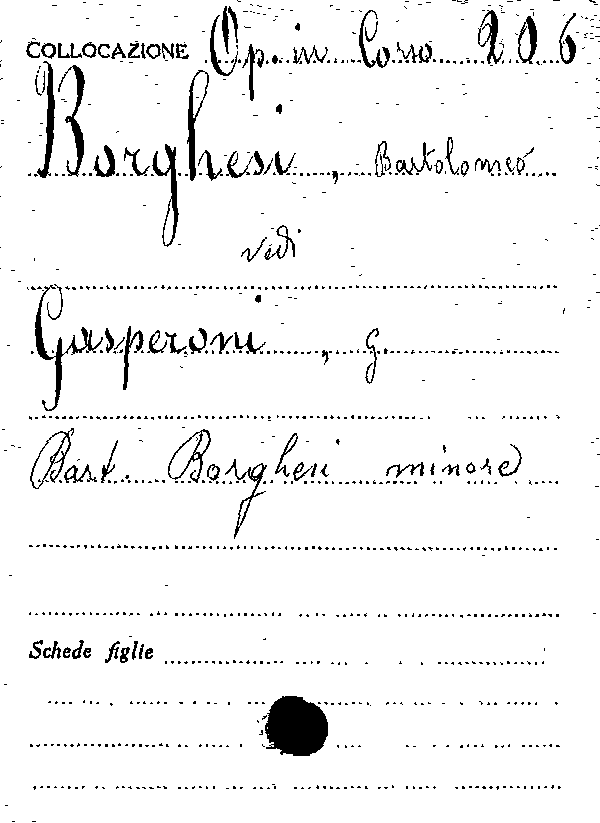 COLLOCAZIONE Op. in Corso 206
Borghesi, Bartolomeo
vedi
Gasperoni, G.
Bart. Borghesi minore
Schede figlie